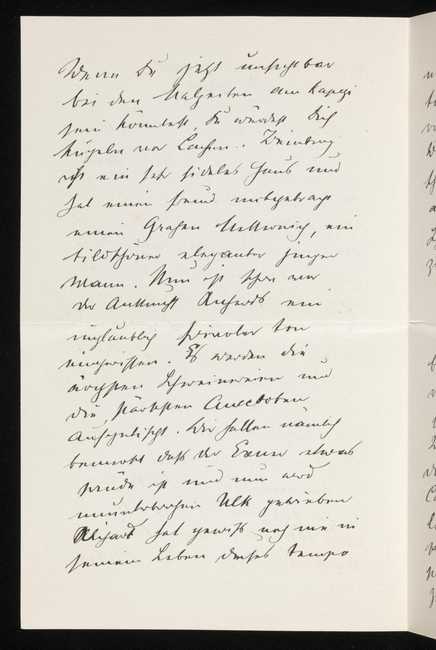 Wenn Du jetzt unsichtbar
bei den Malzeiten am Kappi
sein könntest, Du würdest Dich
kugeln vor Lachen. Weinberg
ist ein sehr fideles Haus und
hat einen Freund mitgebracht
einen Grafen Metternich, ein
bildschöner eleganter junger
Mann. Nun ist schon vor
der Ankunft Richards ein
unglaublich frivoler ton
eingerissen. Es werden die
höchsten Schweinereien und
die stärksten Anecdoten
aufgetischt. Wir hatten nämlich
bemerkt dass der etwas
prüde ist und nun wird
ununterbrochen Ulk getrieben
Richard hat gewiss noch nie in
seinem Leben dieses tempo